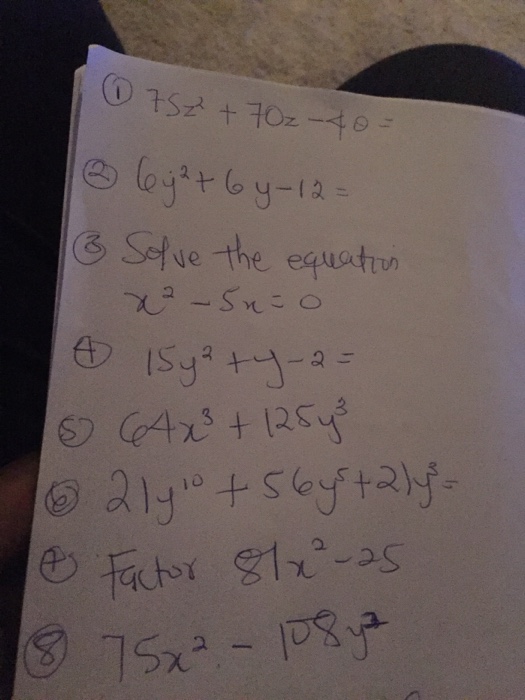 ① 75z² + 70z - 40 =
② 6y² + 6y - 12 =
③ Solve the equation
x² - 5x = 0
④ 15y² + y - 2 =
⑤ 64x³ + 125y³
⑥ 21y¹⁰ + 56y⁵ + 21y³ =
⑦ Factor 81x² - 25
⑧ 75x² - 108y²